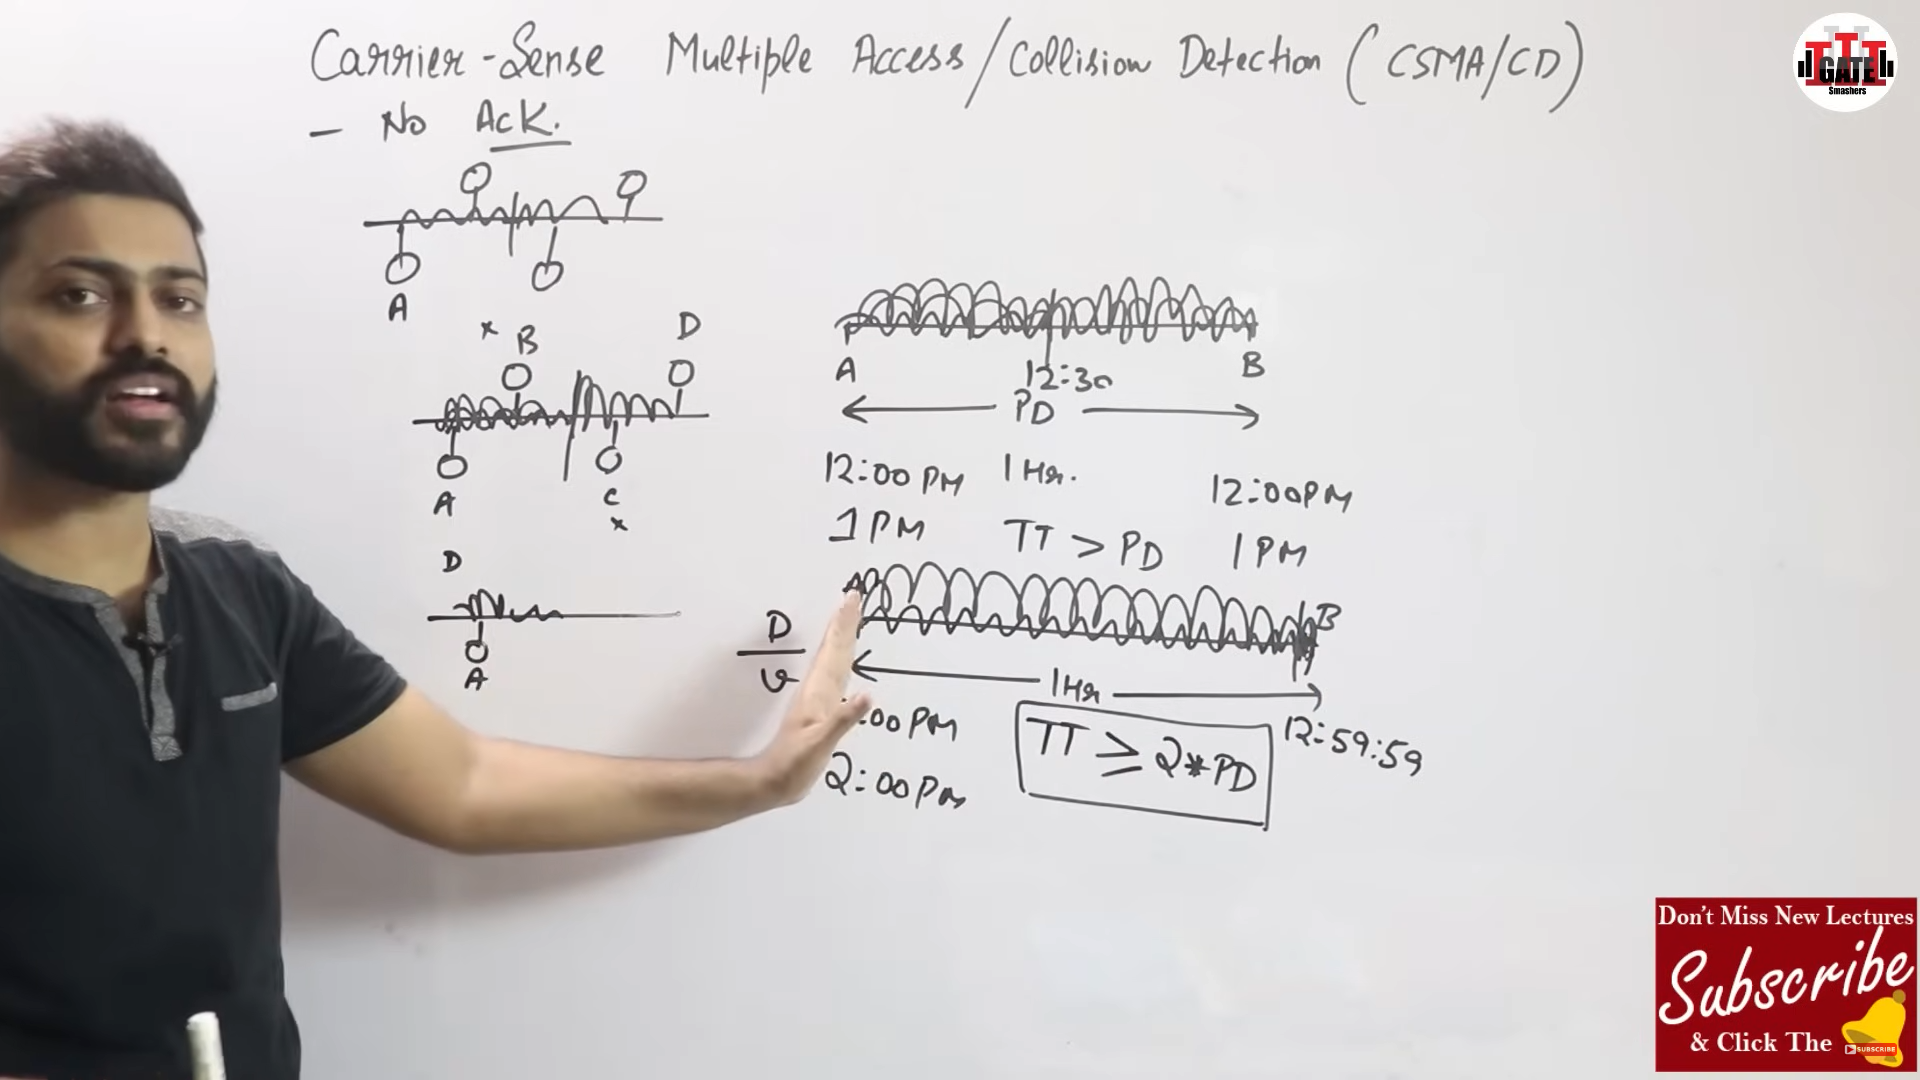 Carrier-Sense Multiple Access/Collision Detection (CSMA/CD)
- No Ack.
A
x B D
A C
x
D
A
A 12:30 B
PD
12:00 PM 1 Hr. 12:00PM
1 PM TT > PD 1 PM
A B
D
v
1Hr
:00 PM TT ≥ 2*PD 12:59:59
2:00 PM
GATE
Smashers
Don't Miss New Lectures
Subscribe
& Click The
SUBSCRIBE